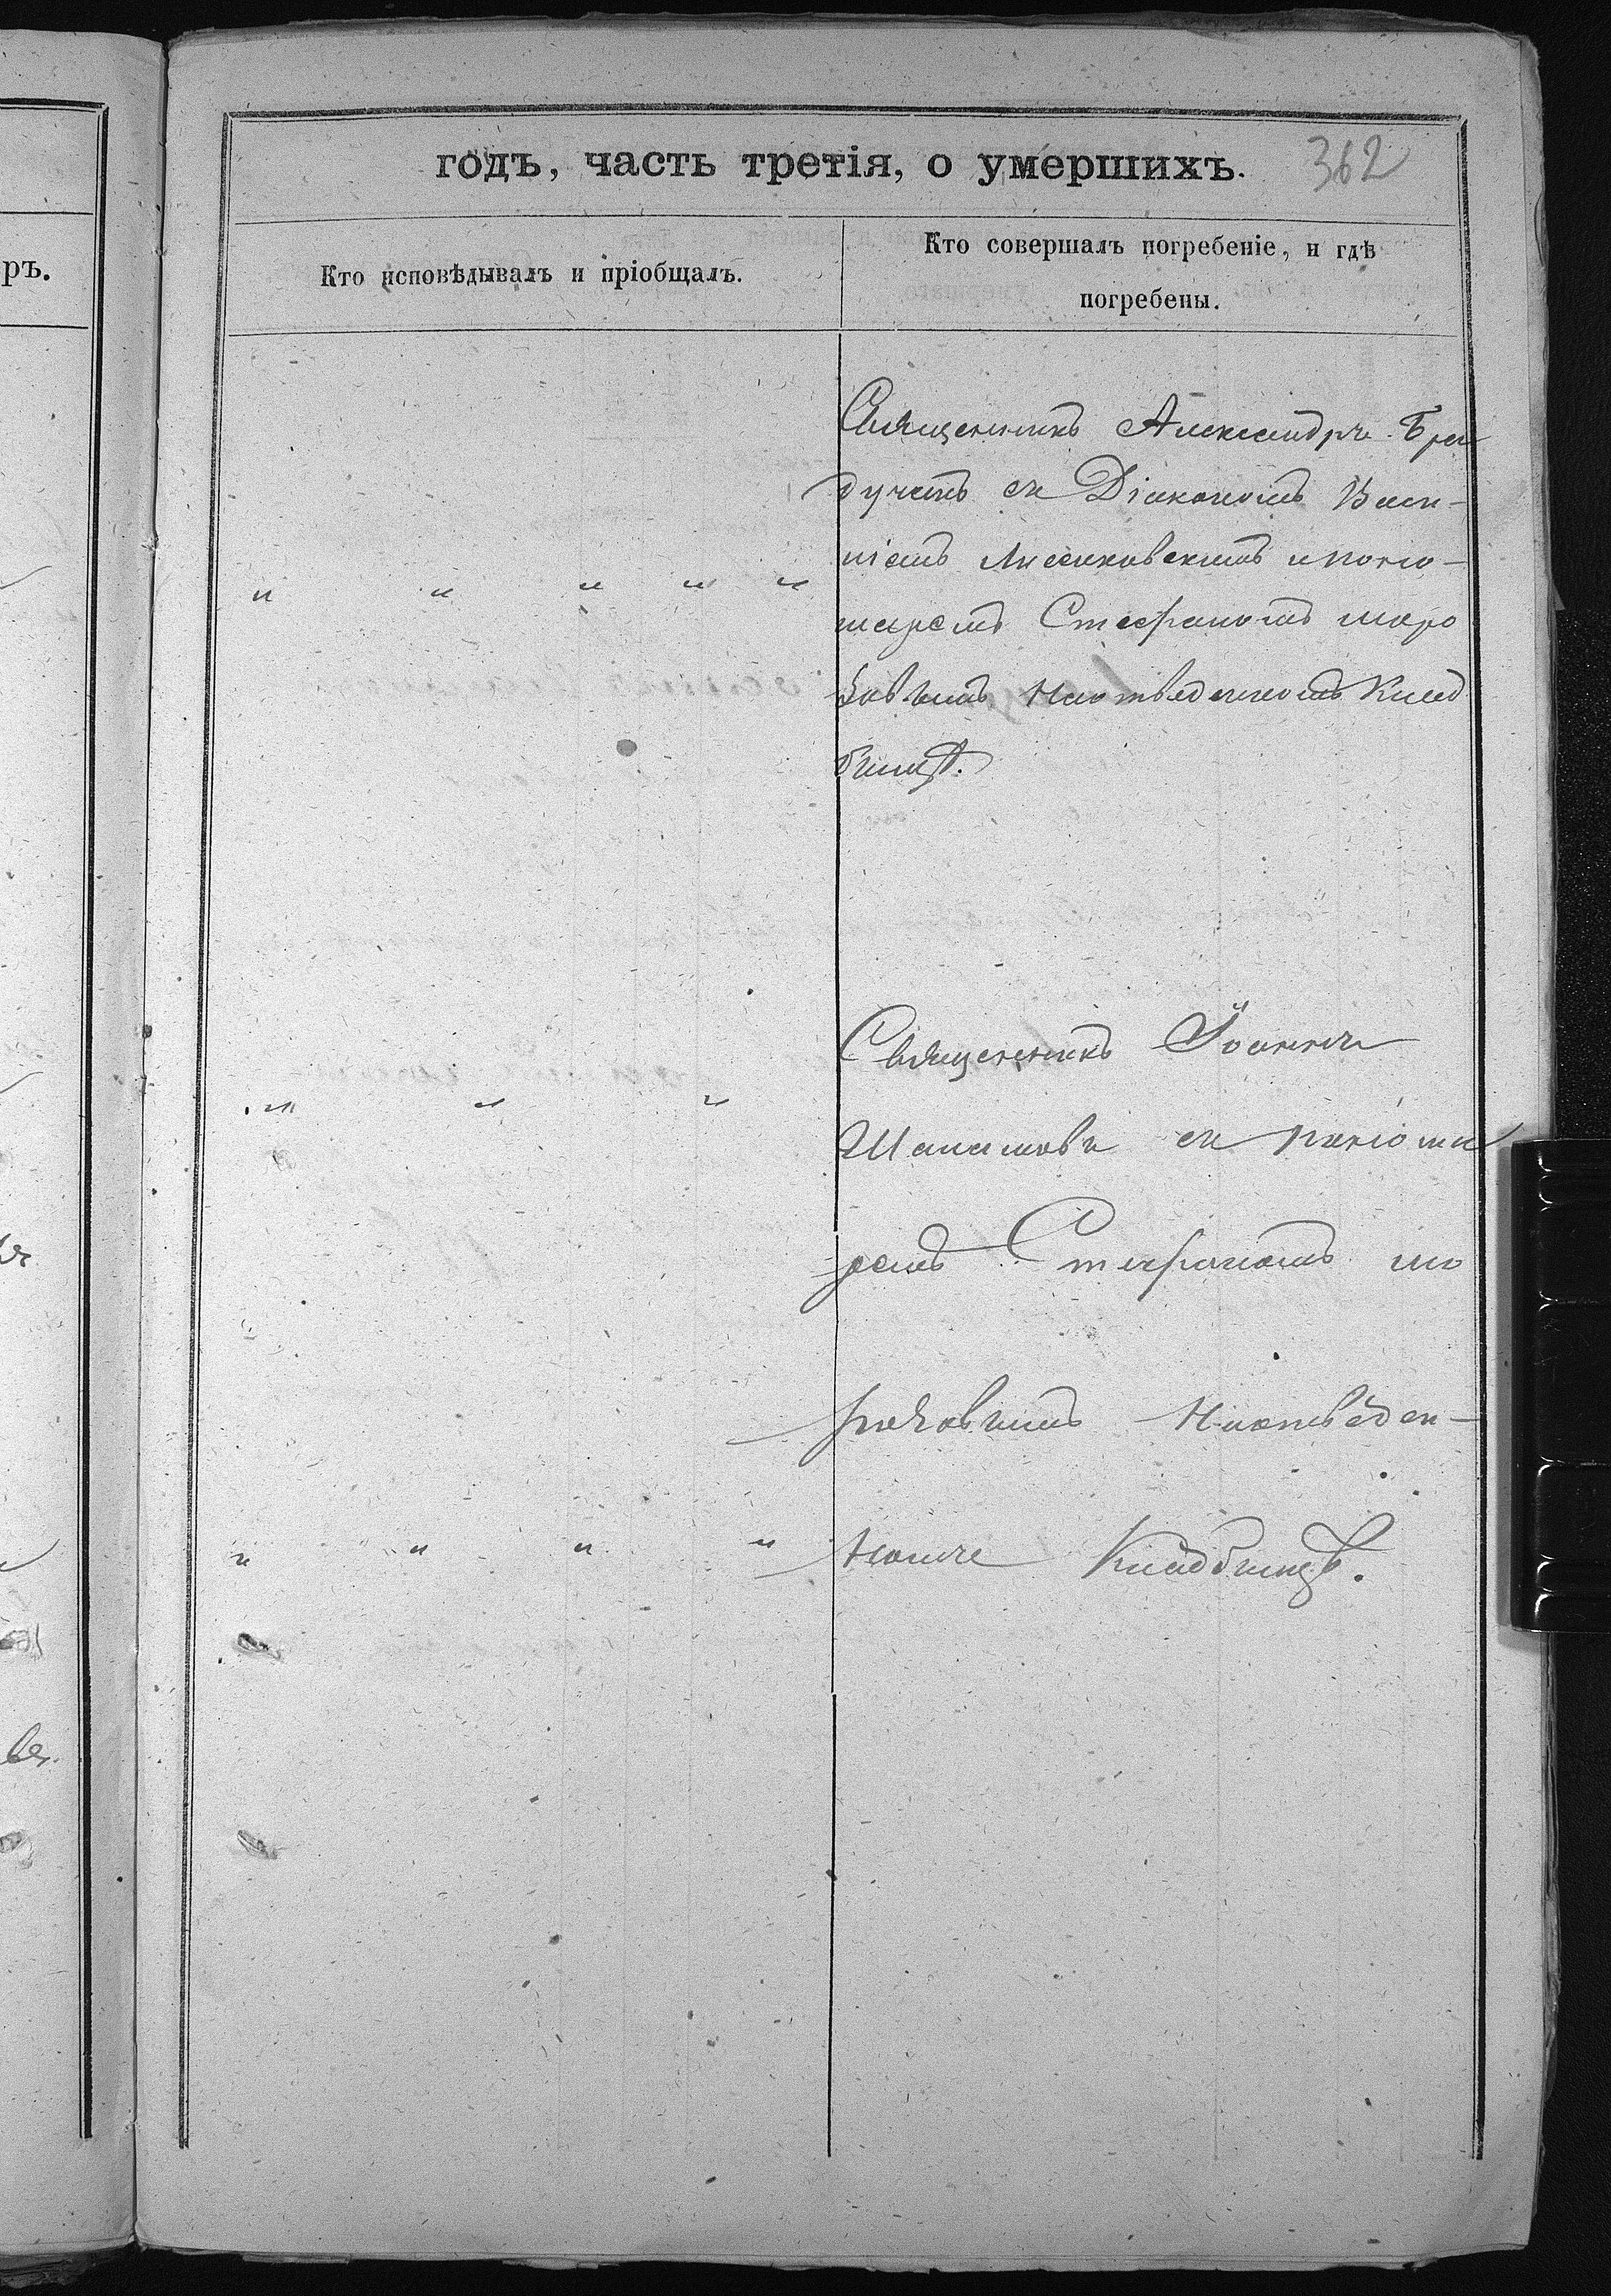 годъ, часть третія, о умершихъ. 362
Кто исповѣдывалъ и пріобщалъ.
Кто совершалъ погребеніе, и гдѣ
погребены.
ръ.
Священникъ Александръ
съ Діакономъ Васи-
ліемъ Лисиковскимъ и поно-
маремъ Стефаномъ моро
зовымъ На отведенномъ Клад
бищѣ.
" " " " "
Священникъ Іоаннъ
Шаламовъ съ понома
" " "
ремъ Стефаномъ мо
розовымъ На отведен-
номъ Кладбищѣ.
" " " "